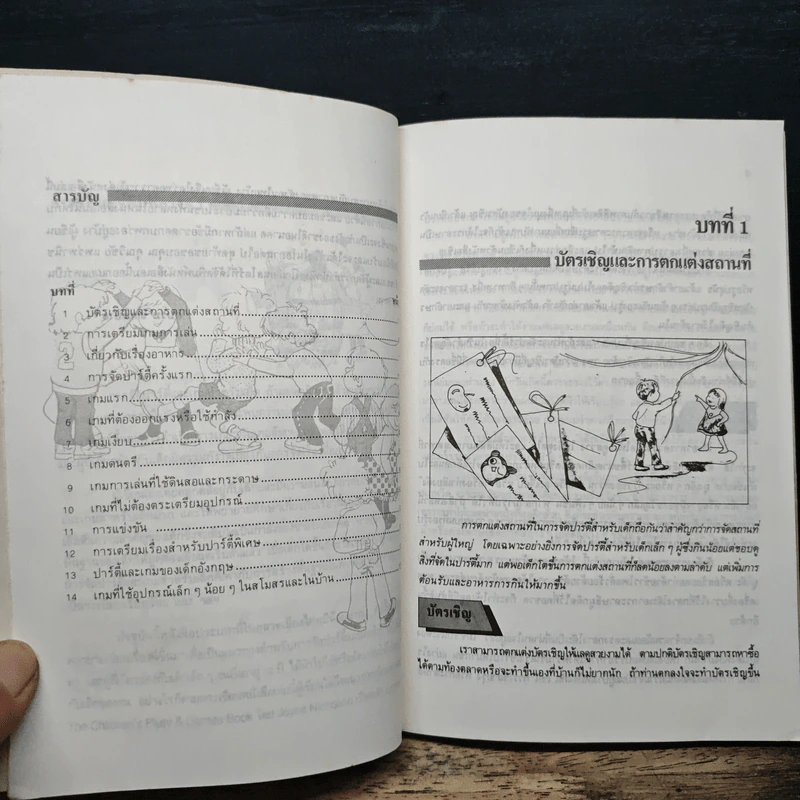 สารบัญ
บทที่
1 บัตรเชิญและการตกแต่งสถานที่
2 การเตรียมเกมการเล่น
3 เกี่ยวกับเรื่องอาหาร
4 การจัดปาร์ตี้ครั้งแรก
5 เกมแรก
6 เกมที่ต้องออกแรงหรือใช้กำลัง
7 เกมเงียบ
8 เกมดนตรี
9 เกมการเล่นที่ใช้ดินสอและกระดาษ
10 เกมที่ไม่ต้องตระเตรียมอุปกรณ์
11 การแข่งขัน
12 การเตรียมเรื่องสำหรับปาร์ตี้พิเศษ
13 ปาร์ตี้และเกมของเด็กอังกฤษ
14 เกมที่ใช้อุปกรณ์เล็ก ๆ น้อย ๆ ในสโมสรและในบ้าน
บทที่ 1
บัตรเชิญและการตกแต่งสถานที่
การตกแต่งสถานที่ในการจัดปาร์ตี้สำหรับเด็กถือกันว่าสำคัญกว่าการจัดสถานที่
สำหรับผู้ใหญ่ โดยเฉพาะอย่างยิ่งการจัดปาร์ตี้สำหรับเด็กเล็ก ๆ ผู้ซึ่งกินน้อยแต่ชอบดู
สิ่งที่จัดในปาร์ตี้มาก แต่พอเด็กโตขึ้นการตกแต่งสถานที่ก็ลดน้อยลงตามลำดับ แต่เพิ่มการ
ต้อนรับและอาหารการกินให้มากขึ้น
บัตรเชิญ
เราสามารถตกแต่งบัตรเชิญให้แลดูสวยงามได้ ตามปกติบัตรเชิญสามารถหาซื้อ
ได้ตามท้องตลาดหรือจะทำขึ้นเองที่บ้านก็ไม่ยากนัก ถ้าท่านตกลงใจจะทำบัตรเชิญขึ้น